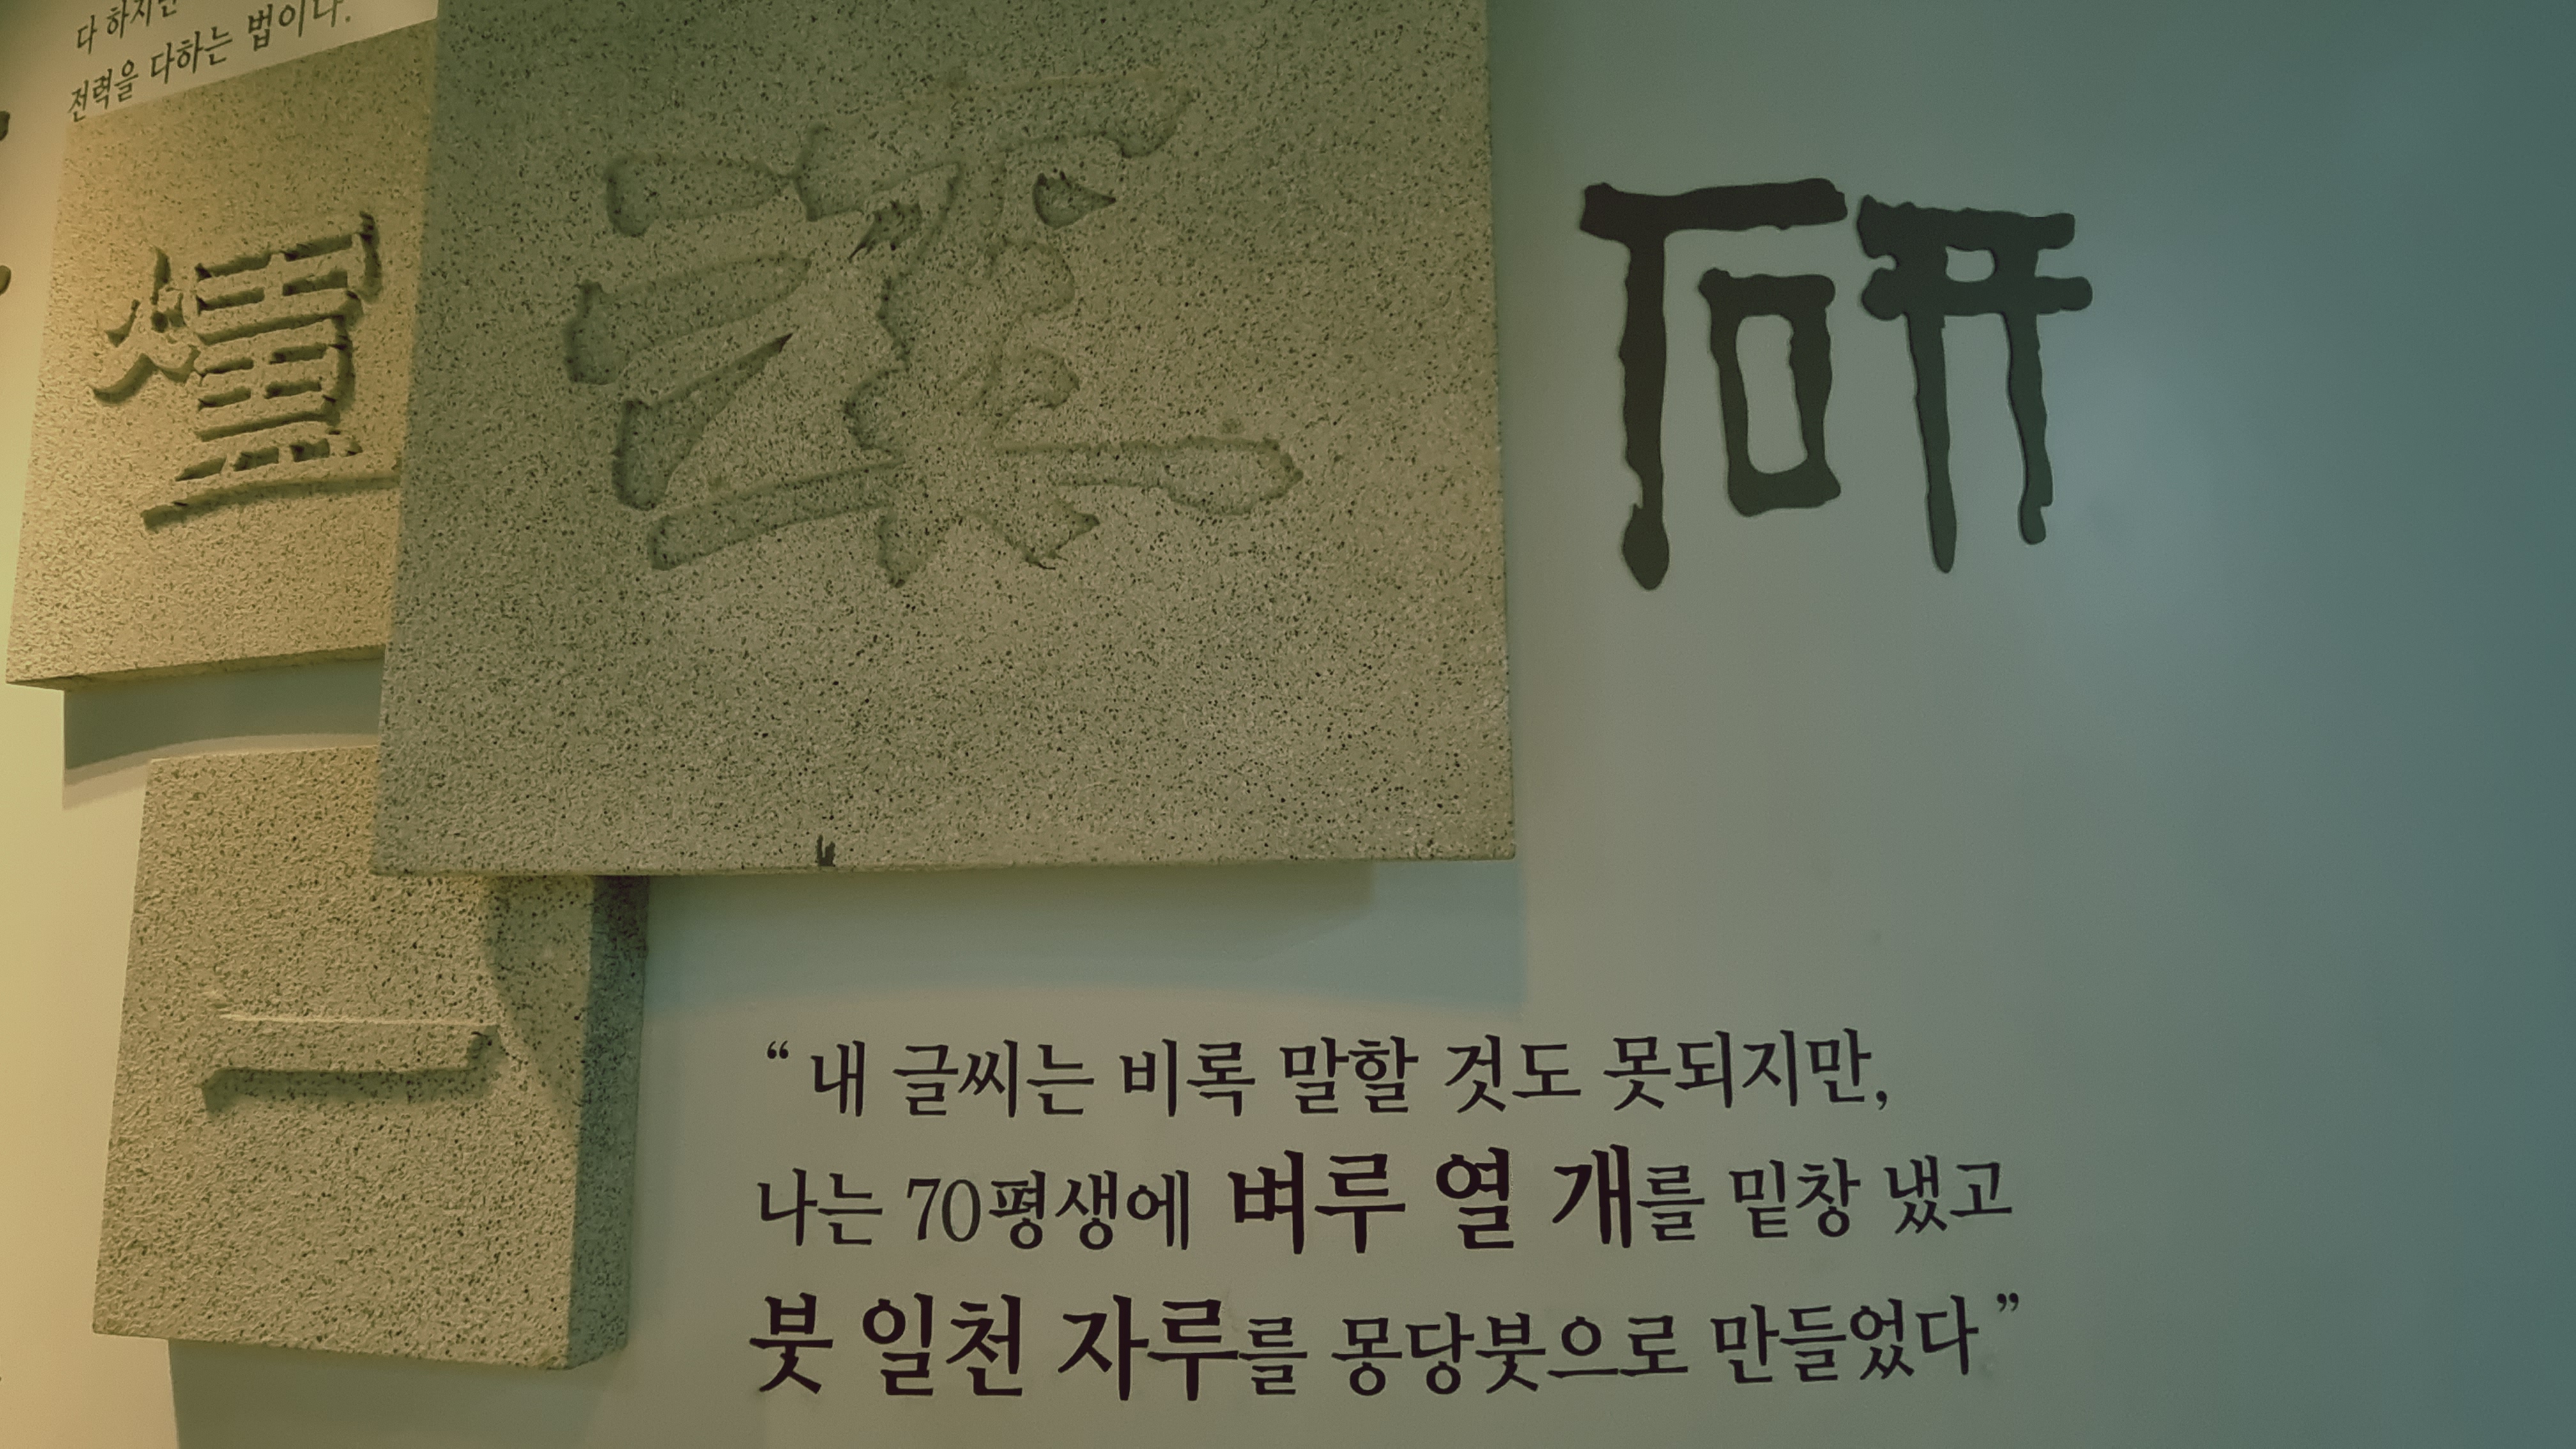 다 하지만
전력을 다하는 법이다.
爐
硏
一
“ 내 글씨는 비록 말할 것도 못되지만,
나는 70평생에 벼루 열 개를 밑창 냈고
붓 일천 자루를 몽당붓으로 만들었다 ”